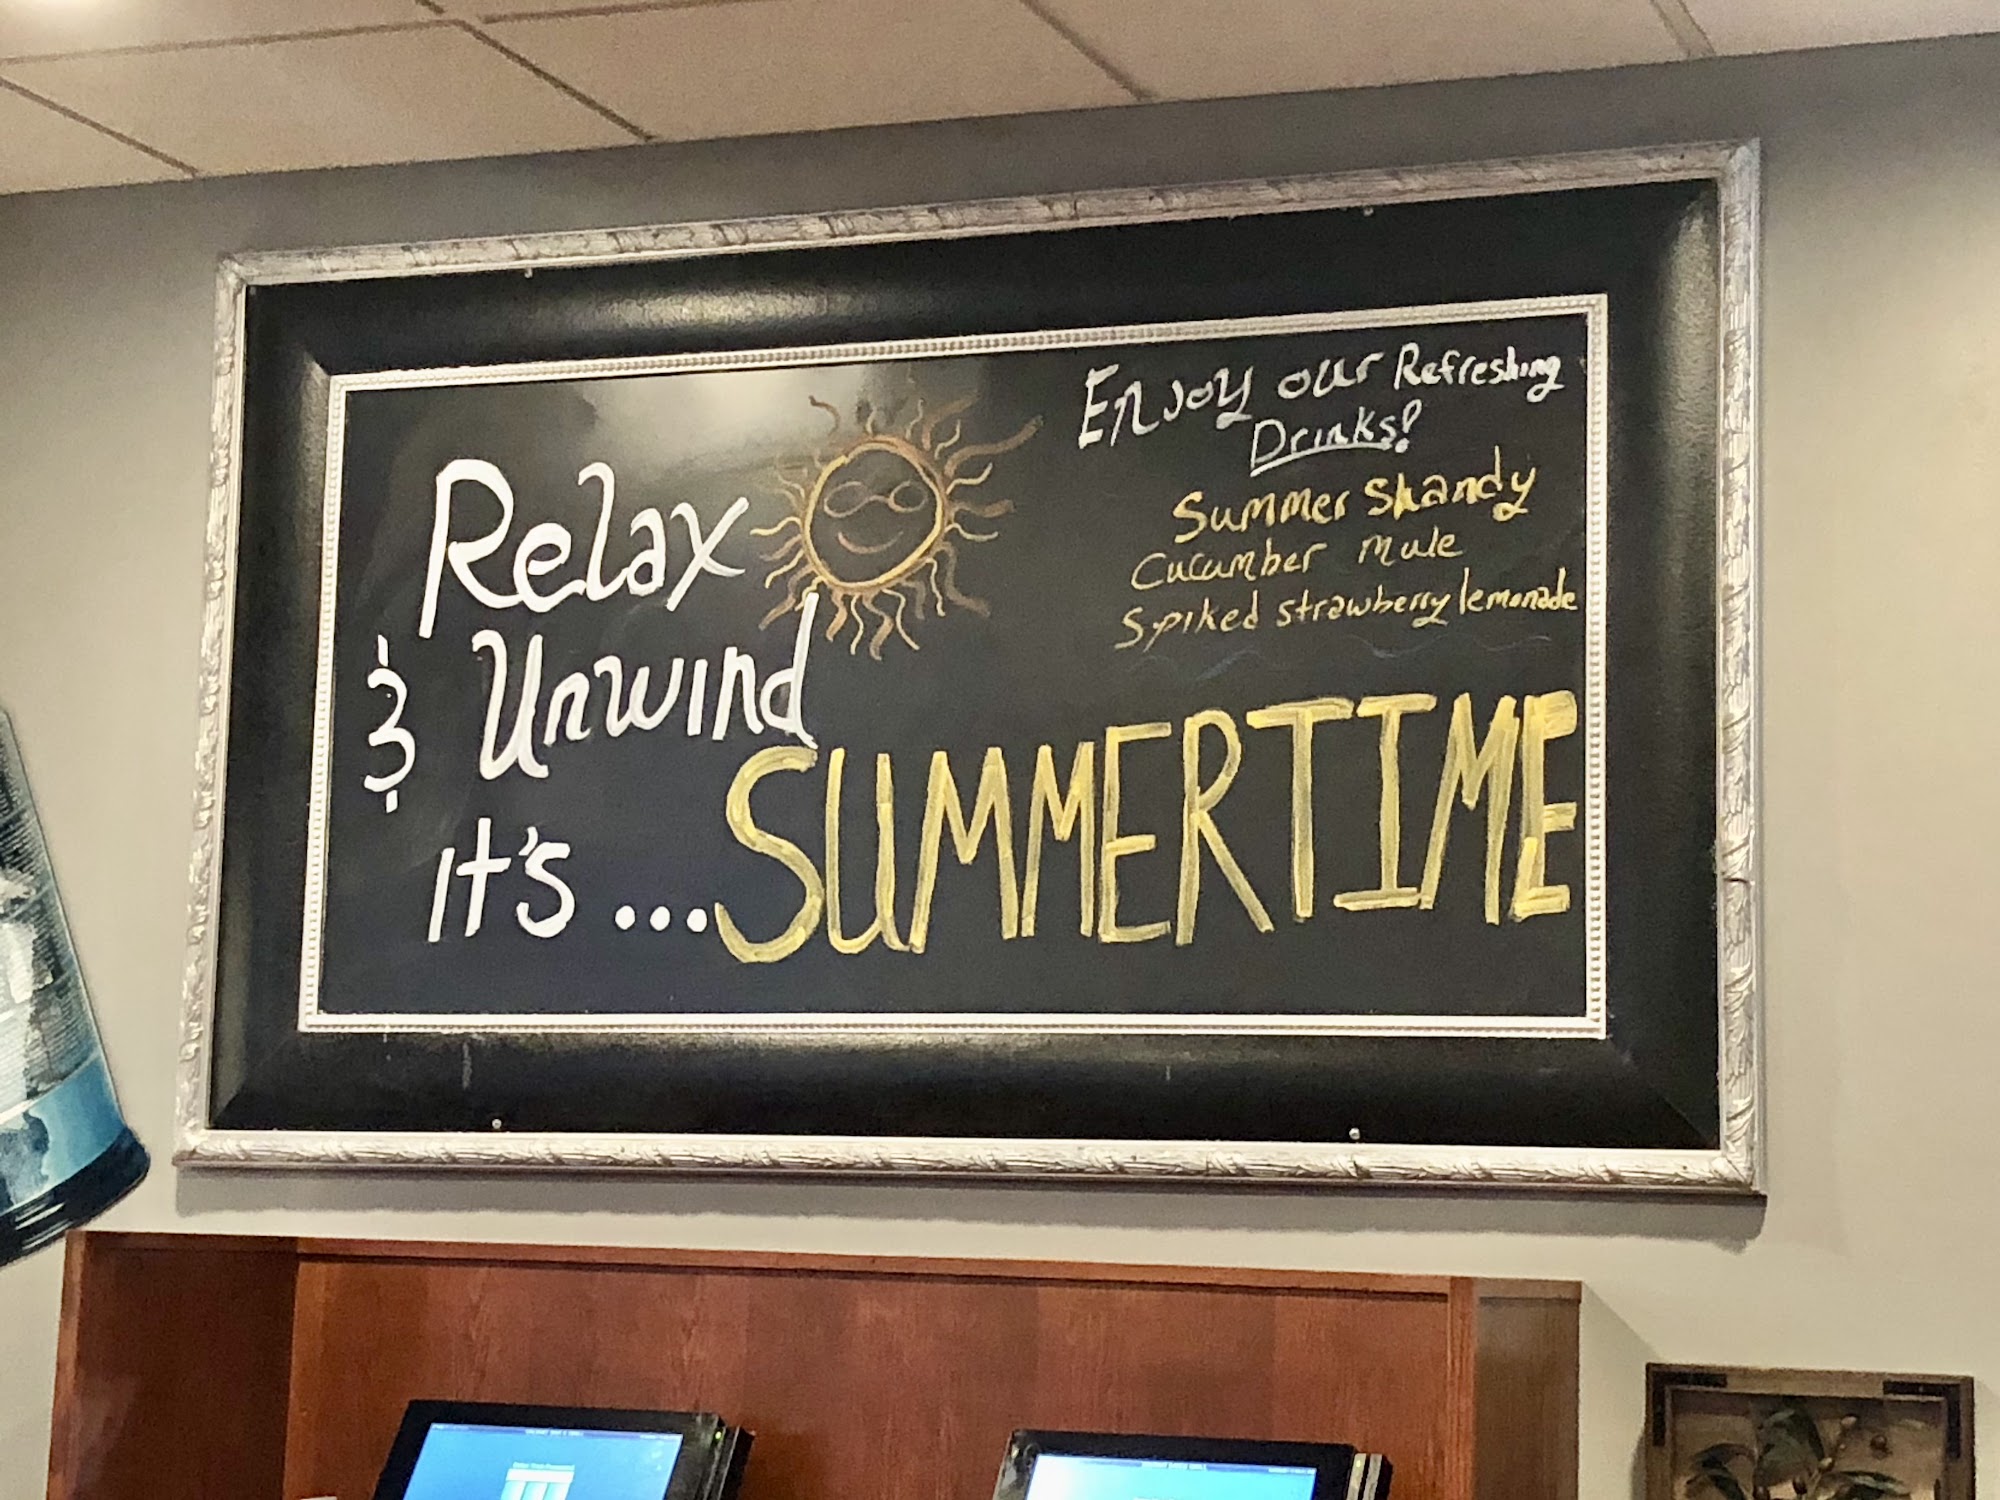 Relax
& Unwind
it's ... SUMMERTIME
Enjoy our Refreshing
Drinks!
Summer Shandy
Cucumber mule
Spiked strawberry lemonade